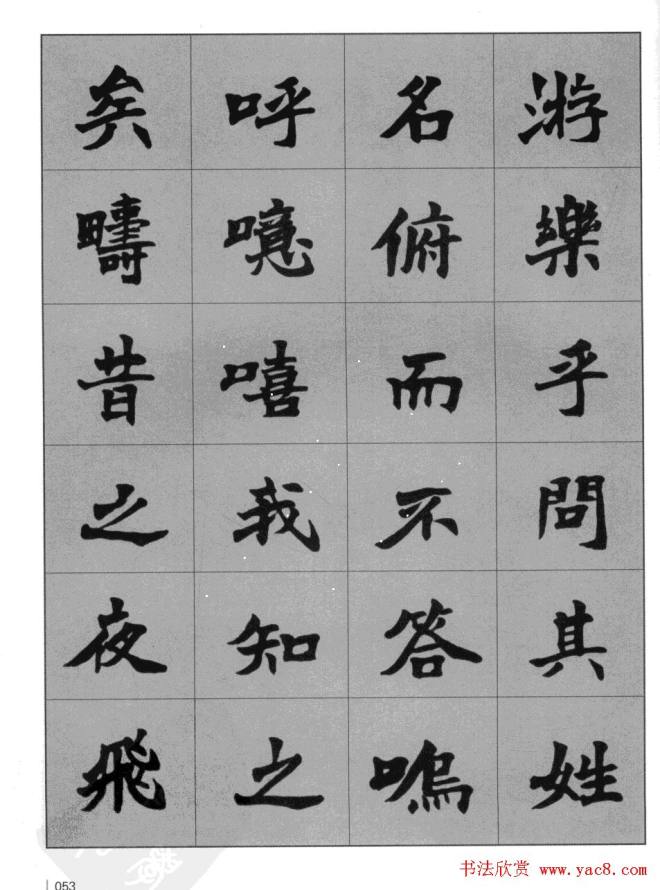 游樂乎問其姓
名俯而不答嗚
呼噫嘻我知之
矣疇昔之夜飛
053
书法欣赏 www.yac8.com